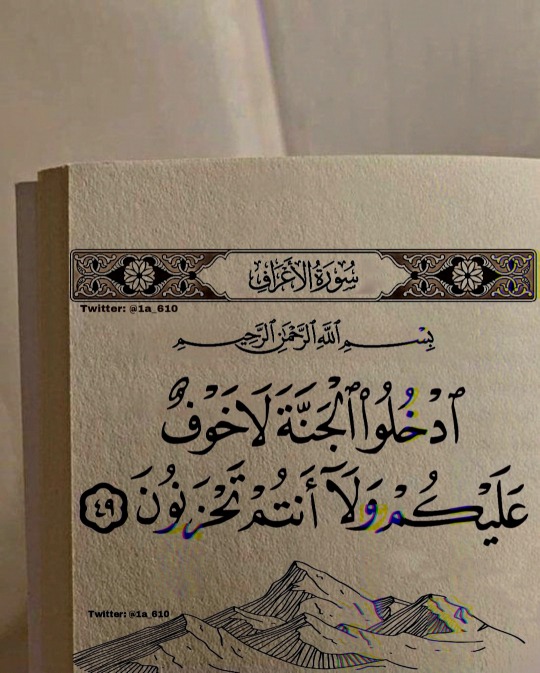 سُورَةُ الأَعۡرَافِ
Twitter: @1a_610
بِسۡمِ ٱللَّهِ ٱلرَّحۡمَٰنِ ٱلرَّحِيمِ
ٱدۡخُلُواْ ٱلۡجَنَّةَ لَا خَوۡفٌ
عَلَيۡكُمۡ وَلَآ أَنتُمۡ تَحۡزَنُونَ ٤٩
Twitter: @1a_610